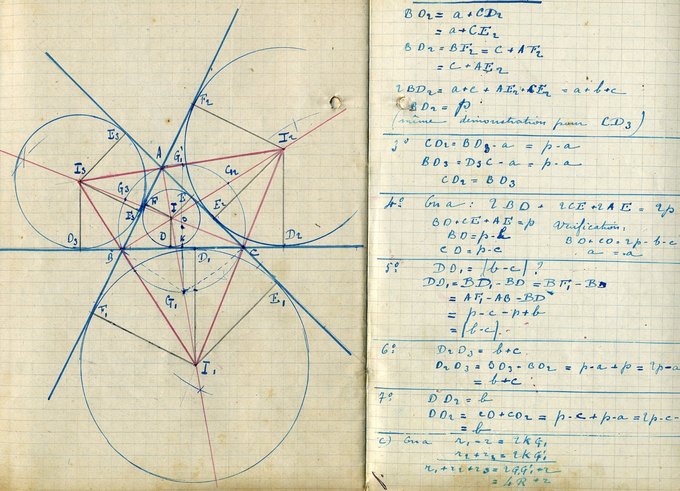 A
G'1
F2
I2
E3
I3
G3
G2
E
F
F3
I
E2
D3
B
D
D1
C
D2
K
G1
F1
E1
I1
BD2 = a + CD2
= a + CE2
BD2 = BF2 = c + AF2
= c + AE2
2BD2 = a+c + AE2 + CE2 = a+b+c
BD2 = p
(même démonstration pour CD3)
3° CD2 = BD2 - a = p - a
BD3 = D3C - a = p - a
CD2 = BD3
4° On a : 2BD + 2CE + 2AE = 2p
BD + CE + AE = p Vérification.
BD = p - b BD + CD = 2p - b - c
CD = p - c a = a
5° DD1 = |b-c| ?
DD1 = BD1 - BD = BF1 - BD
= AF1 - AB - BD
= p - c - p + b
= |b-c|.
6° D2D3 = b + c.
D2D3 = BD3 + BD2 = p - a + p = 2p - a
= b + c
7° DD2 = b
DD2 = CD + CD2 = p - c + p - a = 2p - c -
= b
c) On a r1 - r = 2KG1
r2 + r3 = 2KG'1
r1 + r2 + r3 = 2G1G'1 + r
= 4R + r